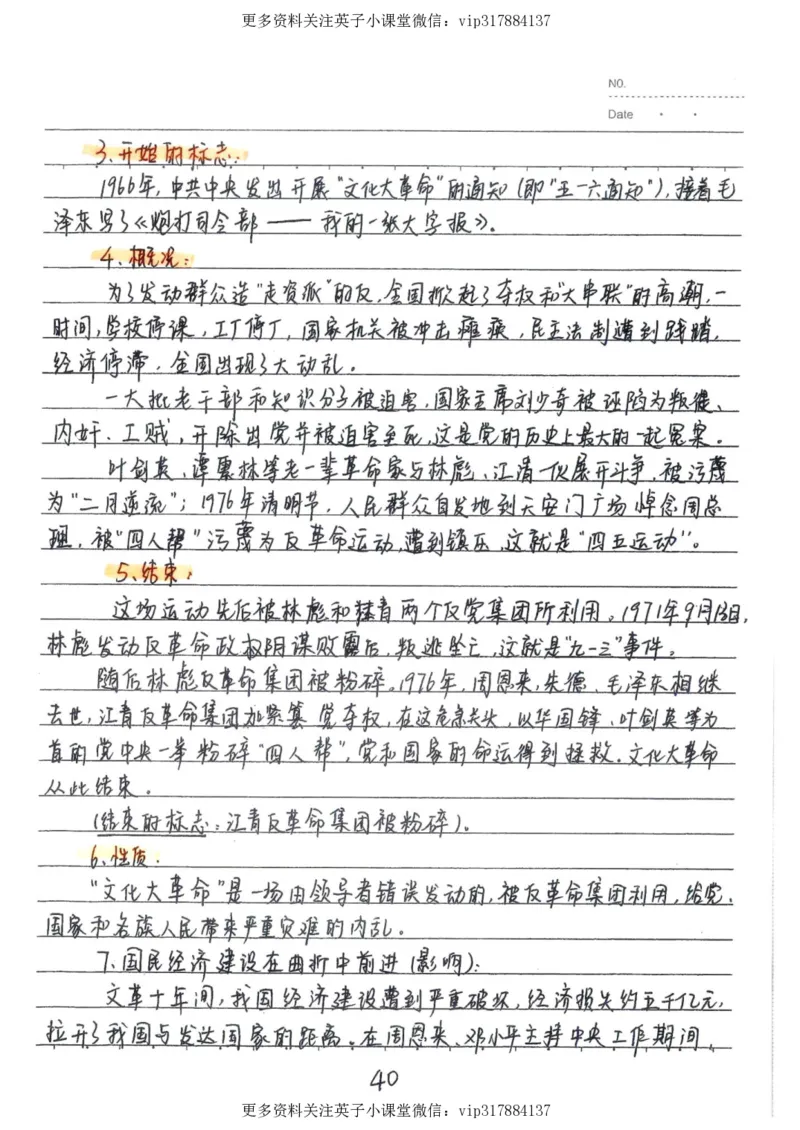 更多资料关注英子小课堂微信：vip317884137
NO.
Date
3、开始的标志：
1966年，中共中央发出开展“文化大革命”的通知（即“五一六通知”），接着毛
泽东写了《炮打司令部——我的一张大字报》。
4、概况：
为了发动群众造“走资派”的反，全国掀起了夺权和“大串联”的高潮，一
时间，学校停课，工厂停厂，国家机关被冲击瘫痪，民主法制遭到践踏，
经济停滞，全国出现了大动乱。
一大批老干部和知识分子被迫害，国家主席刘少奇被诬陷为叛徒、
内奸、工贼，开除出党并被迫害至死，这是党的历史上最大的一起冤案。
叶剑英、谭震林等老一辈革命家与林彪、江清一伙展开斗争，被污蔑
为“二月逆流”；1976年清明节，人民群众自发地到天安门广场悼念周总
理，被“四人帮”污蔑为反革命运动，遭到镇压，这就是“四五运动”。
5、结束：
这场运动先后被林彪和江青两个反党集团所利用。1971年9月13日，
林彪发动反革命政权阴谋败露后，叛逃坠亡，这就是“九一三”事件。
随后林彪反革命集团被粉碎。1976年，周恩来、朱德、毛泽东相继
去世，江青反革命集团加紧篡党夺权，在这危急关头，以华国锋、叶剑英等为
首的党中央一举粉碎“四人帮”，党和国家的命运得到拯救。文化大革命
从此结束。
（结束的标志：江青反革命集团被粉碎）。
6、性质.
“文化大革命”是一场由领导者错误发动的，被反革命集团利用，给党、
国家和各族人民带来严重灾难的内乱。
7、国民经济建设在曲折中前进（影响）：
文革十年间，我国经济建设遭到严重破坏，经济损失约五千亿元，
拉开了我国与发达国家的距离。在周恩来、邓小平主持中央工作期间，
40
更多资料关注英子小课堂微信：vip317884137